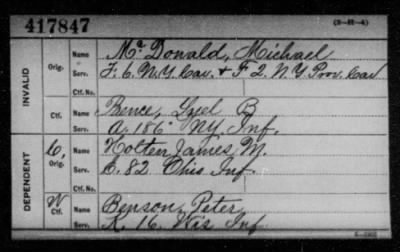 417847 (3-81-4)
INVALID
Orig. Name Mc Donald, Michael
Serv. F. 6. N.Y. Cav. & F 2. N.Y. Prov. Cav
Ctf. No.
Ctf. Name Bence, B
Serv. A. 186" N.Y. Inf.
Ctf. No.
DEPENDENT
C, Orig. Name Holten, James M.
Serv. E. 82. Ohio Inf.
Ctf. No.
W Ctf. Name Benson, Peter
Serv. K. 16. Wis Inf